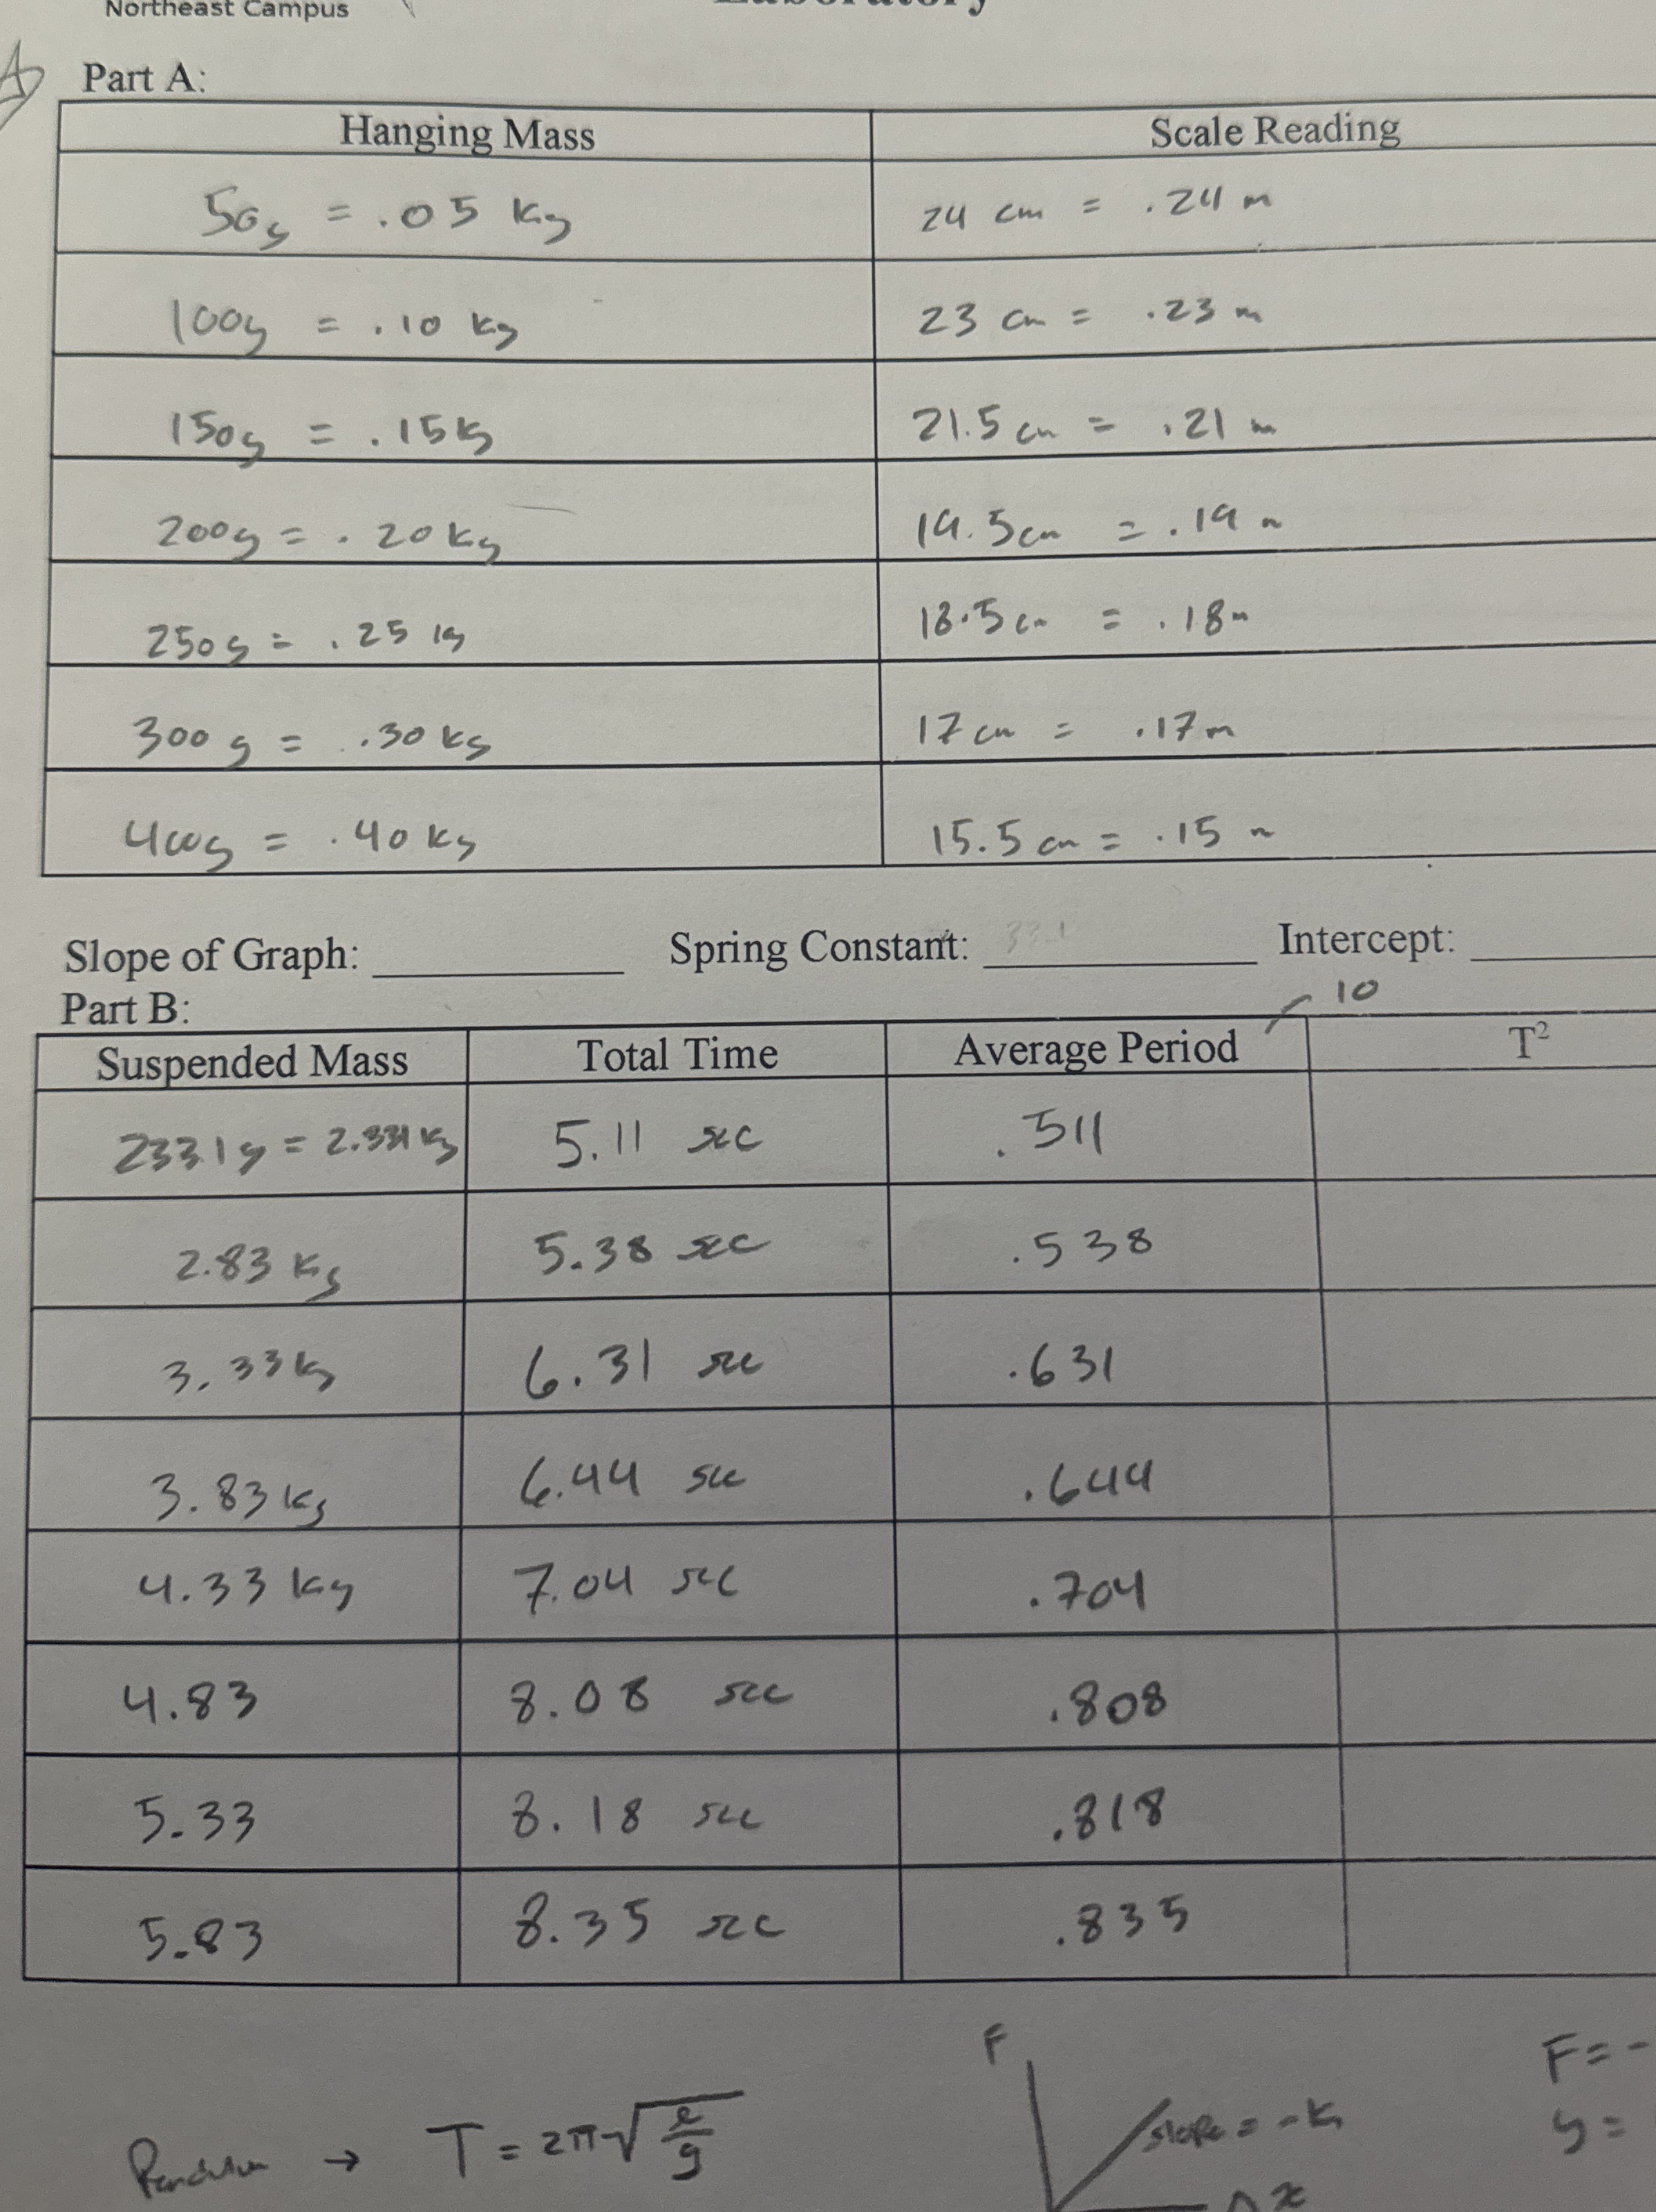 Northeast Campus
Laboratory
Part A:
Hanging Mass Scale Reading
50g = .05 Kg 24 cm = .24 m
100g = .10 Kg 23 cm = .23 m
150g = .15 kg 21.5 cm = .21 m
200g = .20 Kg 19.5 cm = .19 m
250g = .25 kg 18.5 cm = .18 m
300g = .30 Kg 17 cm = .17 m
400g = .40 Kg 15.5 cm = .15 m
Slope of Graph: Spring Constant: Intercept:
Part B:
10
Suspended Mass Total Time Average Period T²
233.1g = 2.331 Kg 5.11 sec .511
2.83 Kg 5.38 sec .538
3.33 kg 6.31 sec .631
3.83 kg 6.44 sec .644
4.33 kg 7.04 sec .704
4.83 8.08 sec .808
5.33 8.18 sec .818
5.83 8.35 sec .835
F F = -
Pendulum → T = 2π√ℓ/g slope = -k y =
Δx